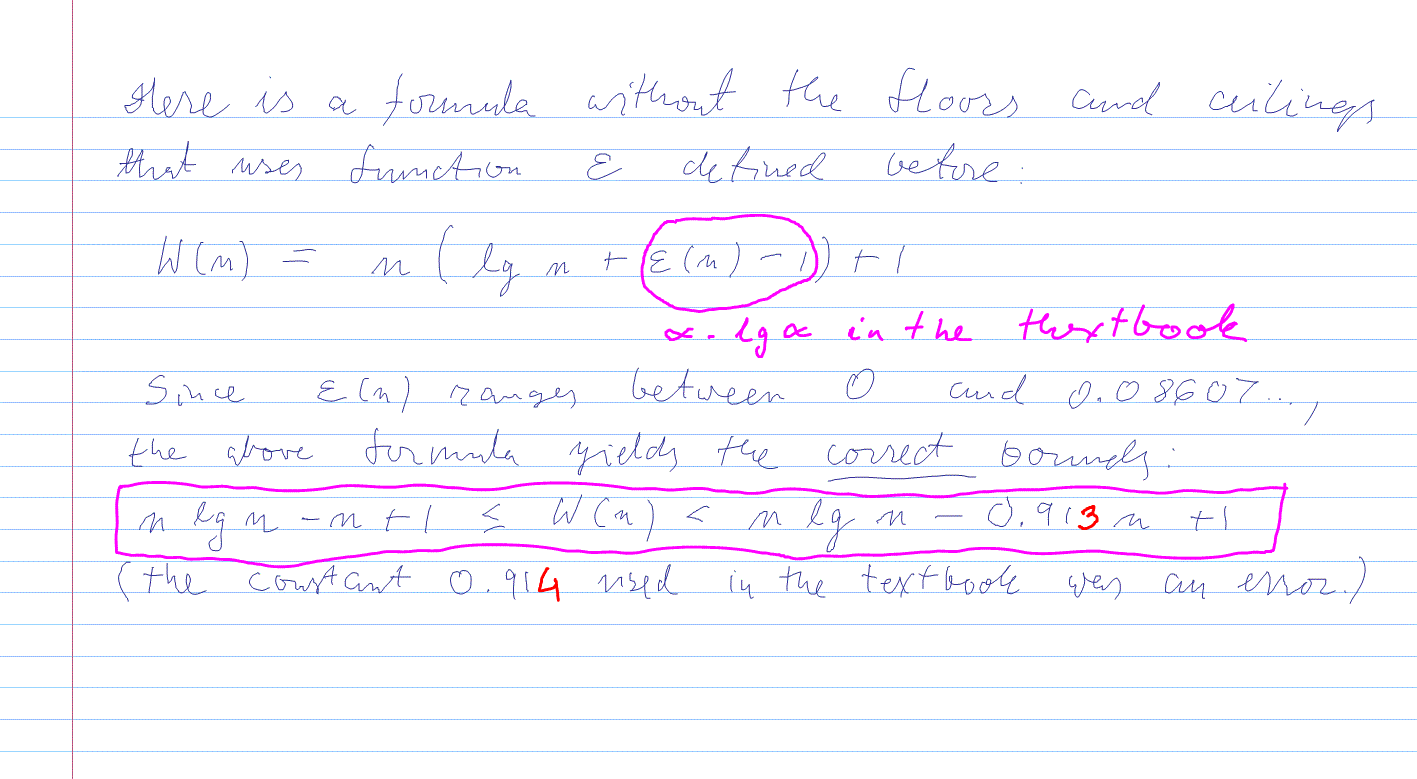 Here is a formula without the floors and ceilings
that uses function ε defined before:
W(n) = n (lg n + ε(n) - 1) + 1
α - lg α in the thextbook
Since ε(n) ranges between 0 and 0.08607...,
the above formula yields the correct bounds:
n lg n - n + 1 ≤ W(n) < n lg n - 0.913 n + 1
(the constant 0.914 used in the textbook was an error.)